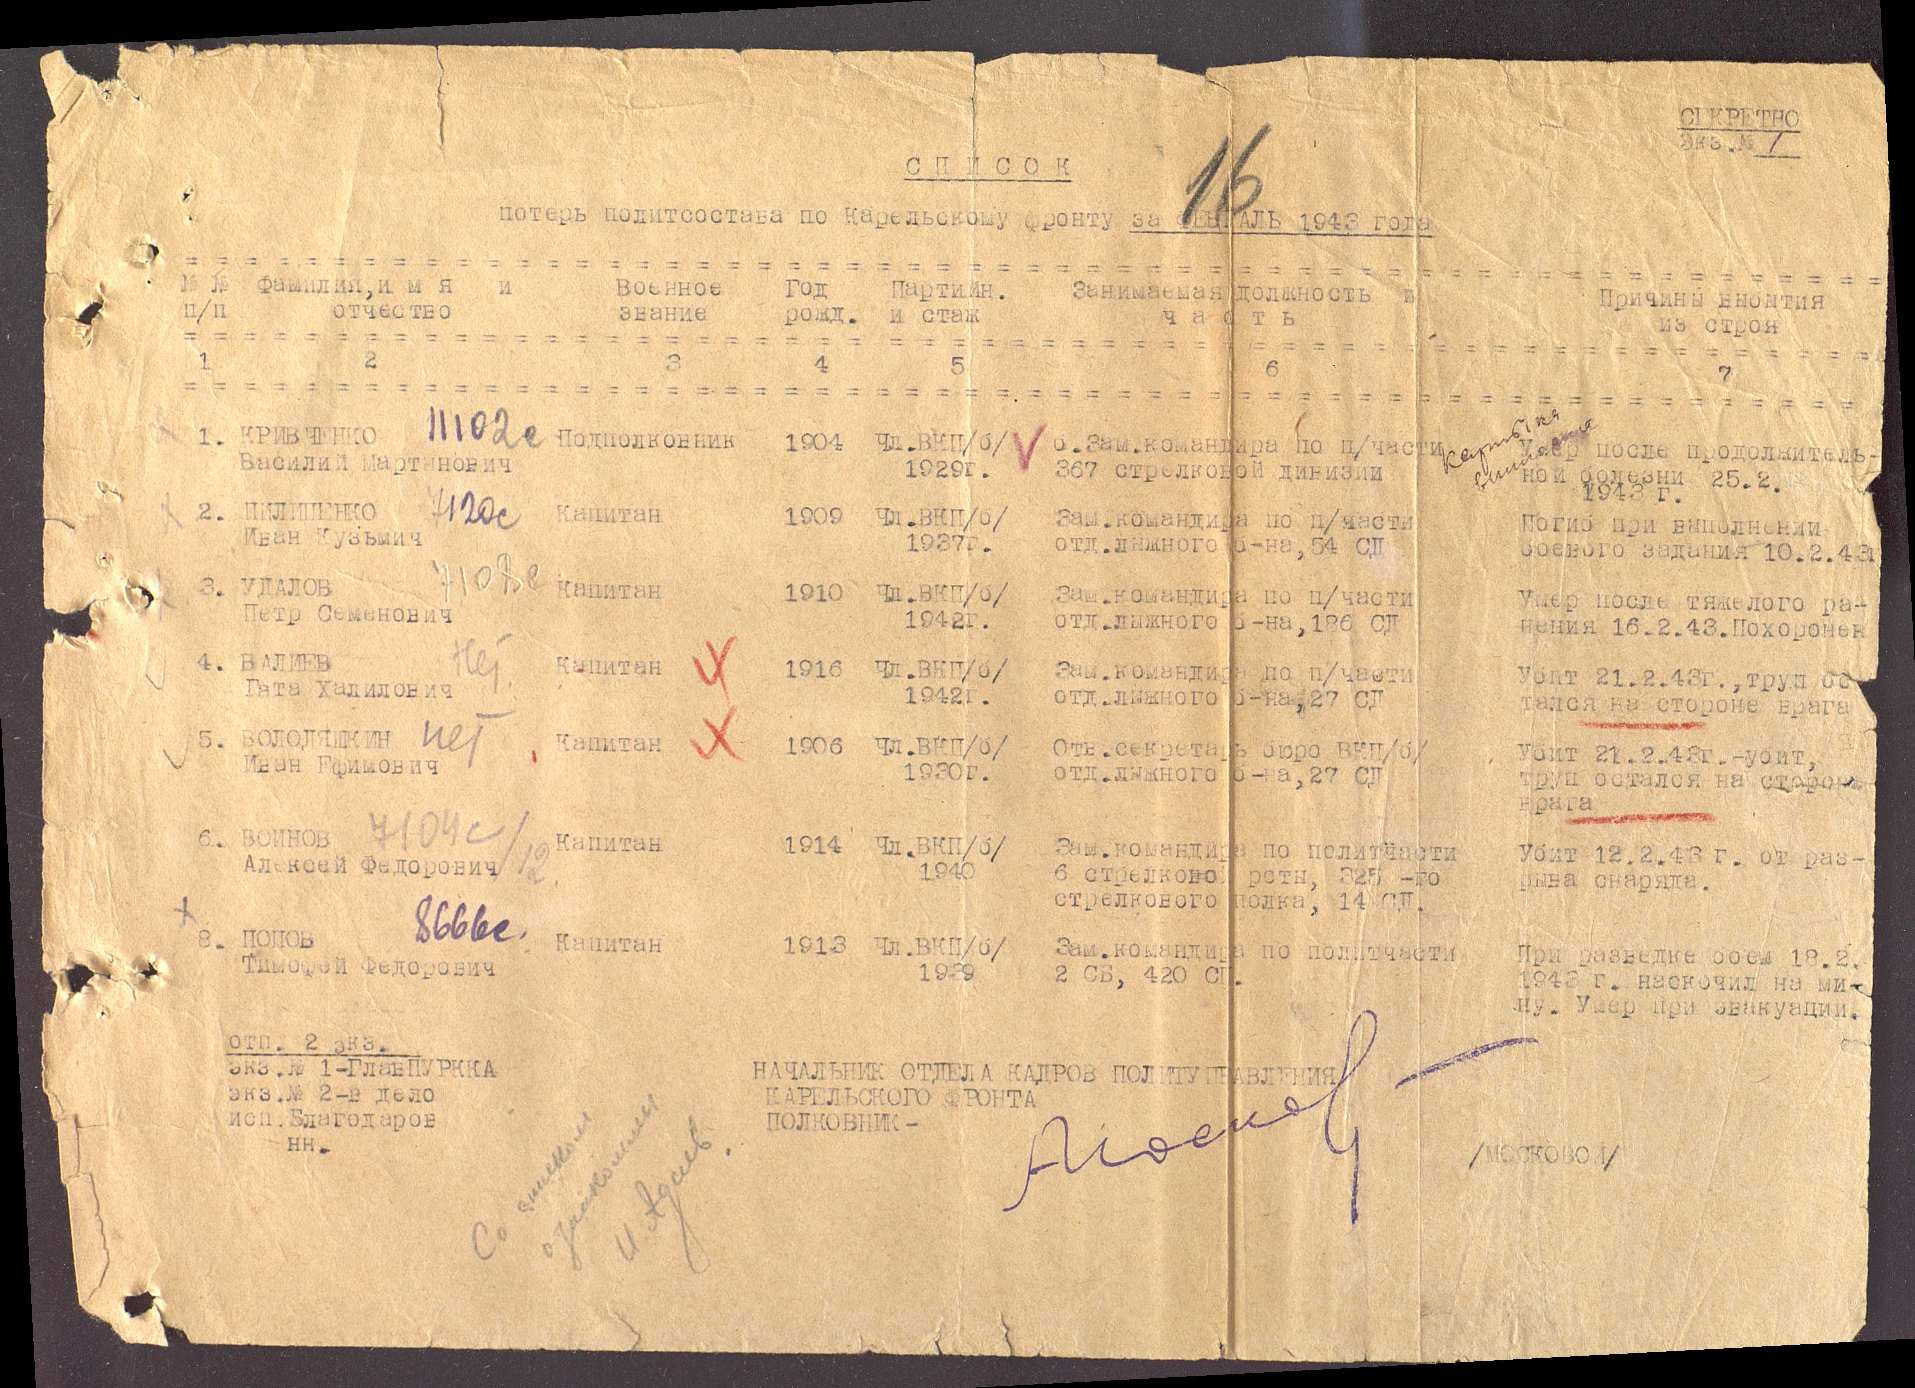 СЕКРЕТНО
экз.№ 1
С П И С О К
16
потерь политсостава по Карельскому фронту за ФЕВРАЛЬ 1943 года
№ № Фамилия, и м я и Военное Год Партийн. Занимаемая должность и Причины выбытия
п/п отчество звание рожд. и стаж ч а с т ь из строя
1 2 3 4 5 6 7
1. КРИВЧЕНКО 11102с Подполковник 1904 Чл.ВКП/б/ б.Зам.командира по п/части Умер после продолжитель-
Василий Мартынович 1929г. 367 стрелковой дивизии ной болезни 25.2.
1943 г.
2. ПИЛИПЕНКО 7120с Капитан 1909 Чл.ВКП/б/ Зам.командира по п/части Погиб при выполнении
Иван Кузьмич 1937г. отд.лыжного б-на,54 СД боевого задания 10.2.43
3. УДАЛОВ 7108с Капитан 1910 Чл.ВКП/б/ Зам.командира по п/части Умер после тяжелого ра-
Петр Семенович 1942г. отд.лыжного б-на,186 СД нения 16.2.43.Похоронен
4. ВАЛИЕВ Нет. Капитан 1916 Чл.ВКП/б/ Зам.командира по п/части Убит 21.2.43г.,труп ос
Гата Халилович 1942г. отд.лыжного б-на,27 СД тался на стороне врага
5. ВОЛОДЯШКИН нет Капитан 1906 Чл.ВКП/б/ Отв.секретарь бюро ВКП/б/ Убит 21.2.43г.-убит,
Иван Ефимович 1930г. отд.лыжного б-на,27 СД труп остался на стороне
врага
6. ВОИНОВ 7104с/12. Капитан 1914 Чл.ВКП/б/ Зам.командира по политчасти Убит 12.2.43 г. от раз-
Алексей Федорович 1940 6 стрелковой роты, 325 -го рыва снаряда.
стрелкового полка, 14 СД.
8. ПОПОВ 8666с. Капитан 1913 Чл.ВКП/б/ Зам.командира по политчасти При разведке боем 18.2.
Тимофей Федорович 1939 2 СБ, 420 СП. 1943 г. наскочил на ми-
ну. Умер при эвакуации.
отп. 2 экз.
экз.№ 1-ГлавПУРККА НАЧАЛЬНИК ОТДЕЛА КАДРОВ ПОЛИТУПРАВЛЕНИЯ
экз.№ 2-в дело КАРЕЛЬСКОГО ФРОНТА
исп.Благодаров ПОЛКОВНИК-
нн.
/МОСКОВОЙ/
Со списком
ознакомлен